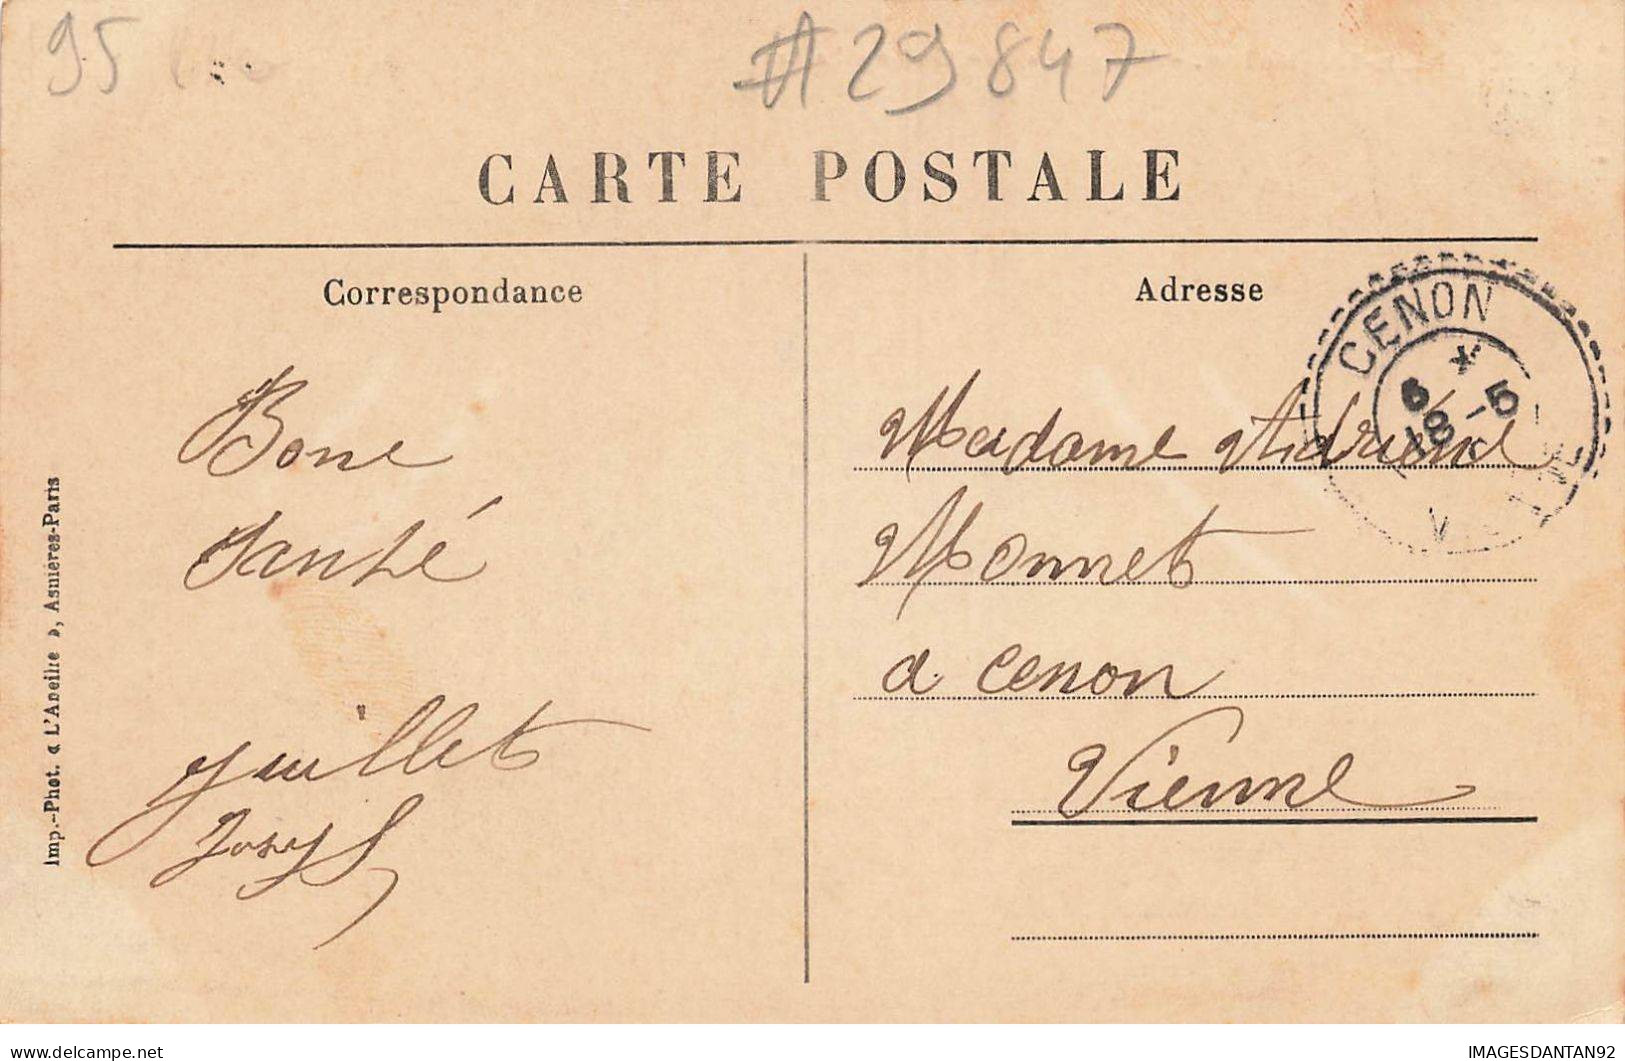 95
#29847
CARTE POSTALE
Correspondance
Adresse
CENON
6 5
18
Bone
Santé
Juillet
Joseph
Madame Adriene
Monnet
a Cenon
Vienne
Imp.-Phot. « L'Abeille », Asnières-Paris
delcampe.net
IMAGESDANTAN92